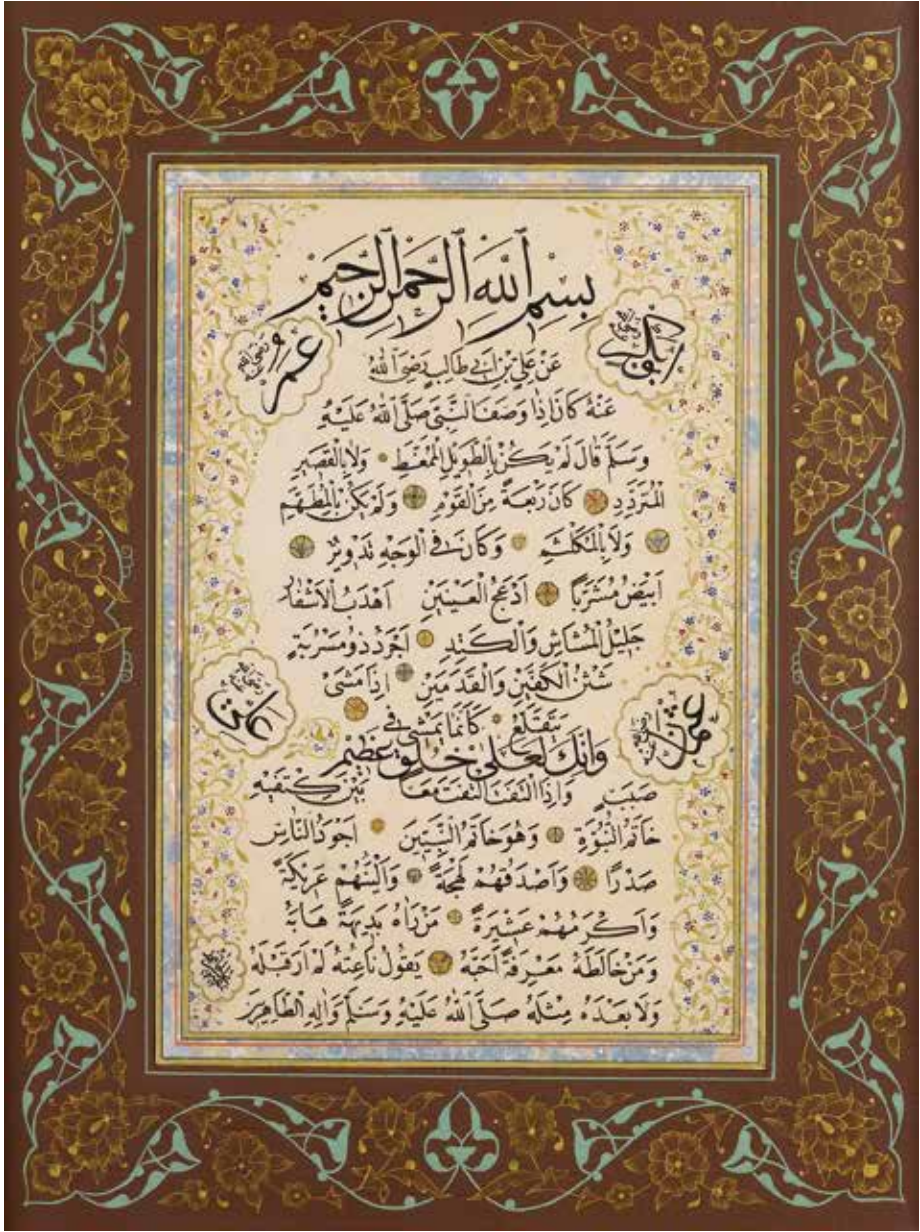 بِسْمِ اللّٰهِ الرَّحْمٰنِ الرَّحِيمِ
ابوبكر رضي الله عنه
عمر رضي الله عنه
عَنْ عَلِيِّ بْنِ اَبِي طَالِبٍ رَضِيَ اللّٰهُ
عَنْهُ كَانَ اِذَا وَصَفَ النَّبِيَّ صَلَّى اللّٰهُ عَلَيْهِ
وَسَلَّمَ قَالَ لَمْ يَكُنْ بِالطَّوِيلِ الْمُمَغَّطِ وَلَا بِالْقَصِيرِ
الْمُتَرَدِّدِ كَانَ رَبْعَةً مِنَ الْقَوْمِ وَلَمْ يَكُنْ بِالْمُطَهَّمِ
وَلَا بِالْمُكَلْثَمِ وَكَانَ فِي الْوَجْهِ تَدْوِيرٌ
اَبْيَضُ مُشْرَبًا اَدْعَجُ الْعَيْنَيْنِ اَهْدَبُ الْاَشْفَارِ
جَلِيلُ الْمُشَاشِ وَالْكَتَدِ اَجْرَدُ ذُو مَسْرُبَةٍ
شَثْنُ الْكَفَّيْنِ وَالْقَدَمَيْنِ اِذَا مَشَى
يَتَقَلَّعُ كَاَنَّمَا يَمْشِي فِي
عثمان رضي الله عنه
علي رضي الله عنه
وَاِنَّكَ لَعَلٰى خُلُقٍ عَظِيمٍ
صَبَبٍ وَاِذَا الْتَفَتَ الْتَفَتَ مَعًا بَيْنَ كَتِفَيْهِ
خَاتَمُ النُّبُوَّةِ وَهُوَ خَاتَمُ النَّبِيِّينَ اَجْوَدُ النَّاسِ
صَدْرًا وَاَصْدَقُهُمْ لَهْجَةً وَاَلْيَنُهُمْ عَرِيكَةً
وَاَكْرَمُهُمْ عَشِيرَةً مَنْ رَاٰهُ بَدِيهَةً هَابَهُ
وَمَنْ خَالَطَهُ مَعْرِفَةً اَحَبَّهُ يَقُولُ نَاعِتُهُ لَمْ اَرَ قَبْلَهُ
وَلَا بَعْدَهُ مِثْلَهُ صَلَّى اللّٰهُ عَلَيْهِ وَسَلَّمَ وَاٰلِهِ الطَّاهِرِينَ